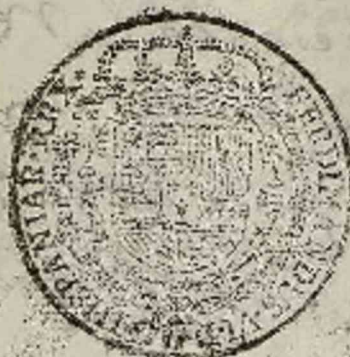 FERDINANDUS VI HISPANIAR. REX